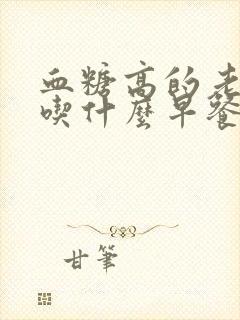 血糖高的老
喫什麼早餐
甘筆